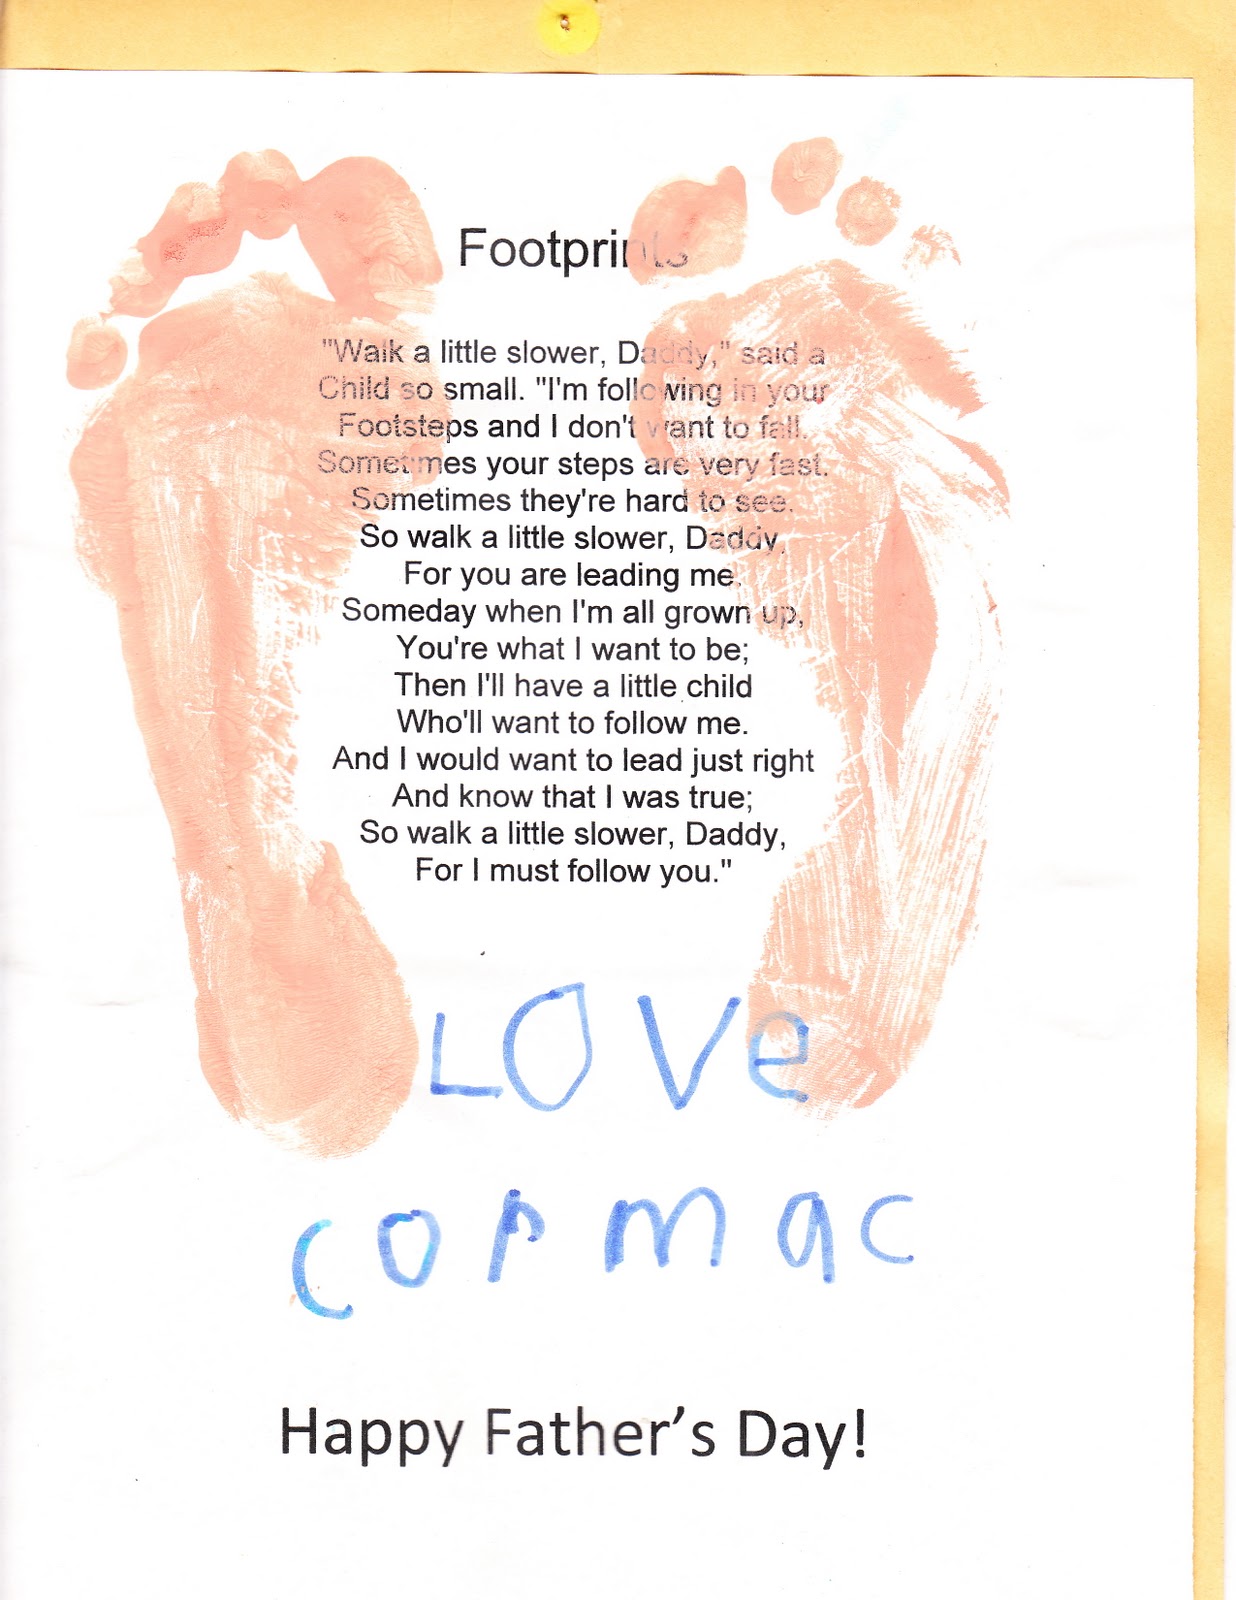 Footprints
"Walk a little slower, Daddy," said a
Child so small. "I'm following in your
Footsteps and I don't want to fall.
Sometimes your steps are very fast.
Sometimes they're hard to see.
So walk a little slower, Daddy,
For you are leading me.
Someday when I'm all grown up,
You're what I want to be;
Then I'll have a little child
Who'll want to follow me.
And I would want to lead just right
And know that I was true;
So walk a little slower, Daddy,
For I must follow you."
LOVe
cormac
Happy Father's Day!